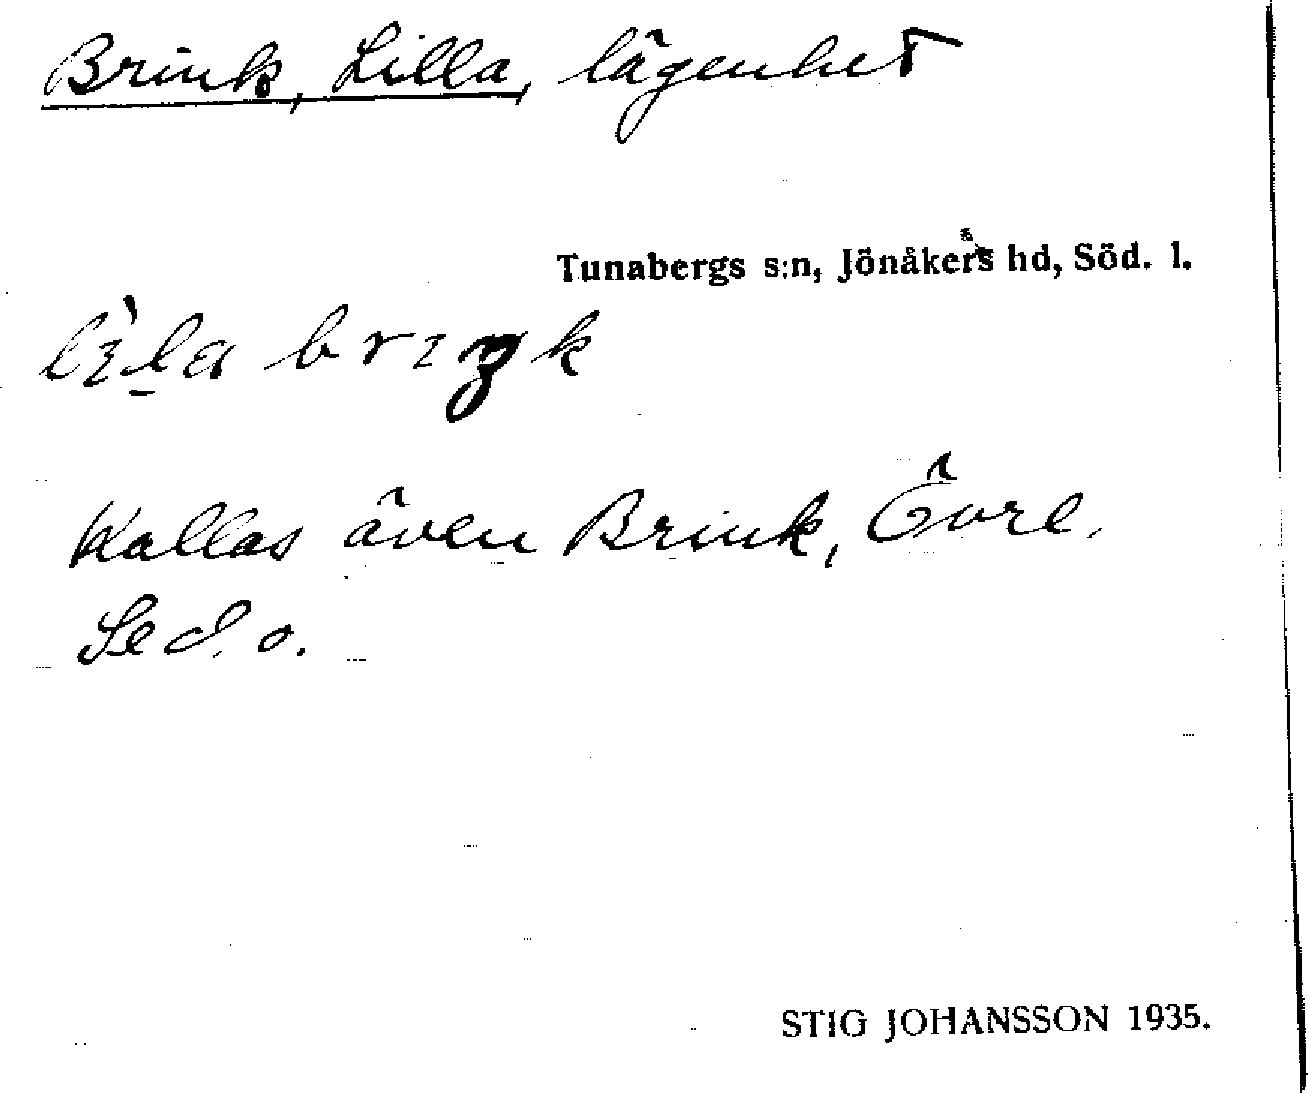 Brink, Lilla, lägenhet
Tunabergs s:n, Jönåkers hd, Söd. l.
lìla brıŋk
Kallas även Brink, Övre.
Se d. o.
STIG JOHANSSON 1935.